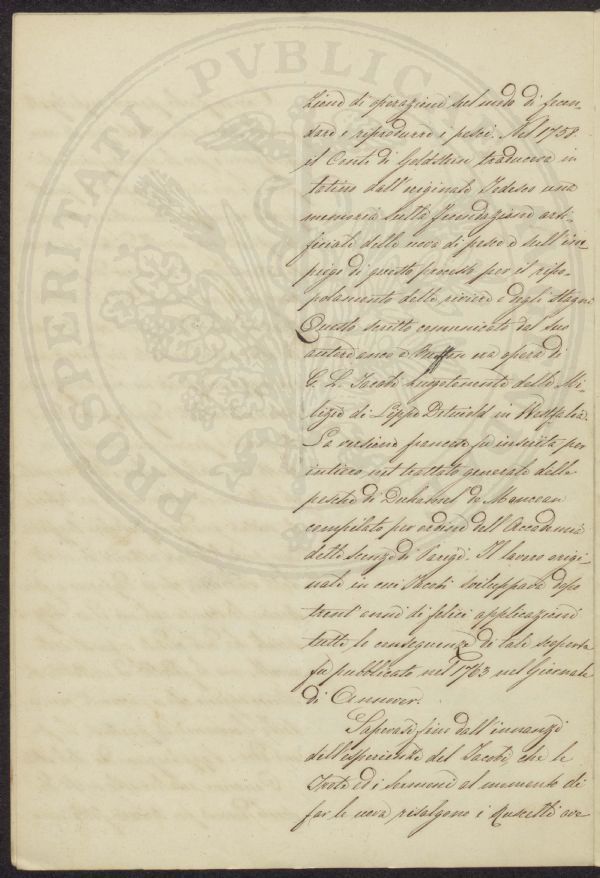 PROSPERITATI PVBLICAE
zione di operazioni sul modo di fecon-
dare e riprodurre i pesci. Nel 1758
il Conte di Goldstein traduceva in
latino dall'originale Tedesco una
memoria sulla fecondazione arti-
ficiale delle uova di pesce e sull'im-
piego di questo processo per il ripo-
polamento delle riviere e degli stagni
Questo scritto comunicato dal suo
autore anco a Buffon era opera di
G. L. Jacobi Luogotenente delle Mi-
lizie di Lippe Detmold in Westfalia.
La versione francese fu inserita per
intiero nel trattato generale delle
pesche di Duhamel de Monceau
compilato per ordine dell'Accademia
delle Scienze di Parigi. Il lavoro origi-
nale in cui Jacobi sviluppava dopo
trent'anni di felici applicazioni
tutte le conseguenze di tale scoperta
fu pubblicato nel 1763 nel Giornale
di Annover.
Sapevasi fino dall'innanzi
dell'esperienze del Jacobi che le
Trote ed i sermoni al momento di
far le uova risalgono i Ruscelli ove